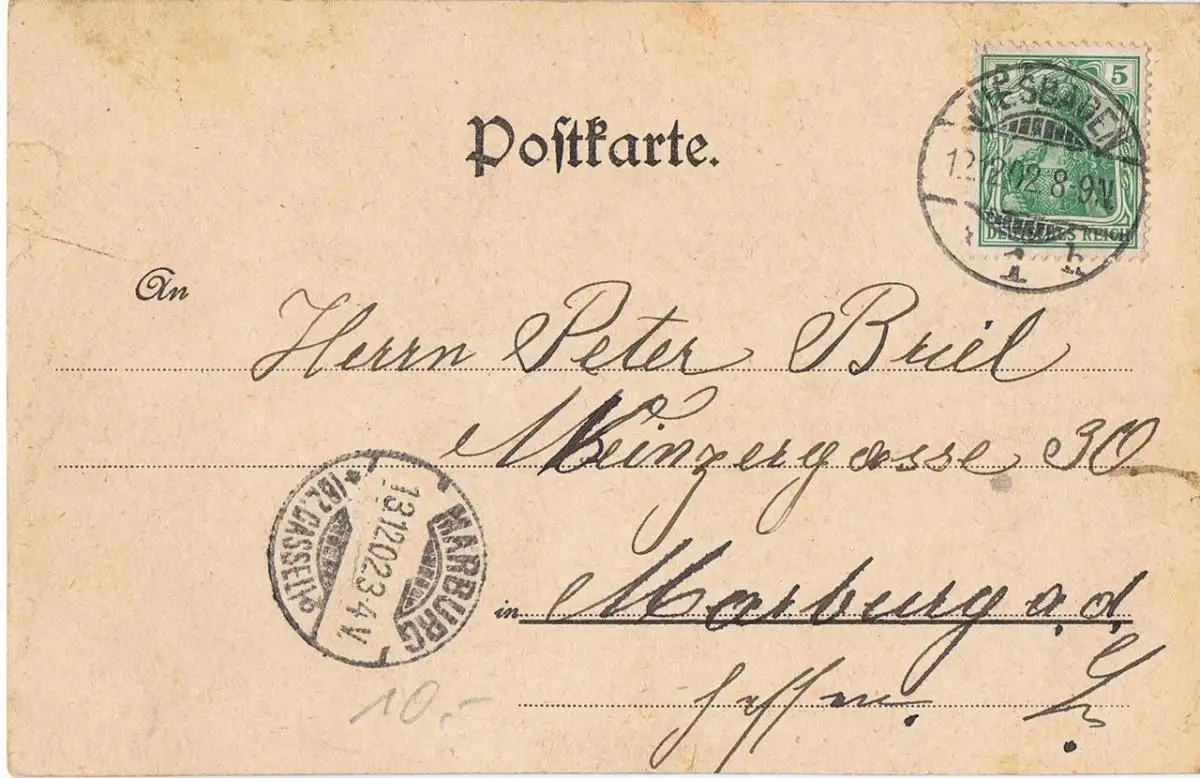 Postkarte.
5
WIESBADEN
12.12.02.8-9.N.
* 1 h
DEUTSCHES REICH
An
Herrn Peter Briel
Weinzergasse 30
MARBURG
13.12.02.3-4V.
*(BZ. CASSEL)
in Marburg a. d. L.
Hessen.
10.-